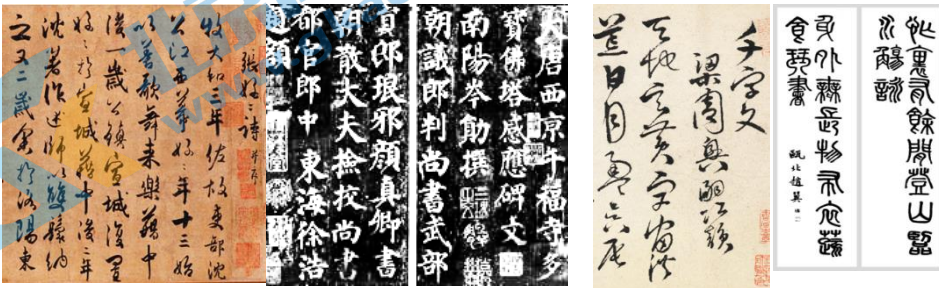 張好好詩并序
牧大和三年佐故吏部沈
公江西幕好好年十三始
以善歌舞来樂籍中
後一歲公鎮宣城復置
好好於宣城籍中後二年
沈著作述師以雙鬟納
之又二歲余於洛陽東
大唐西京千福寺多
寶佛塔感應碑文
南陽岑勛撰
朝議郎判尚書武部
員郎琅邪顏真卿書
朝散大夫撿挍尚書
都官郎中 東海徐浩
題額
千字文
梁周興嗣次韻
天地玄黃宇宙洪
荒日月盈昃辰
此裏有餘閒登山臨
水觴詠
身外無長物布衣蔬
食琴書
甌北趙翼